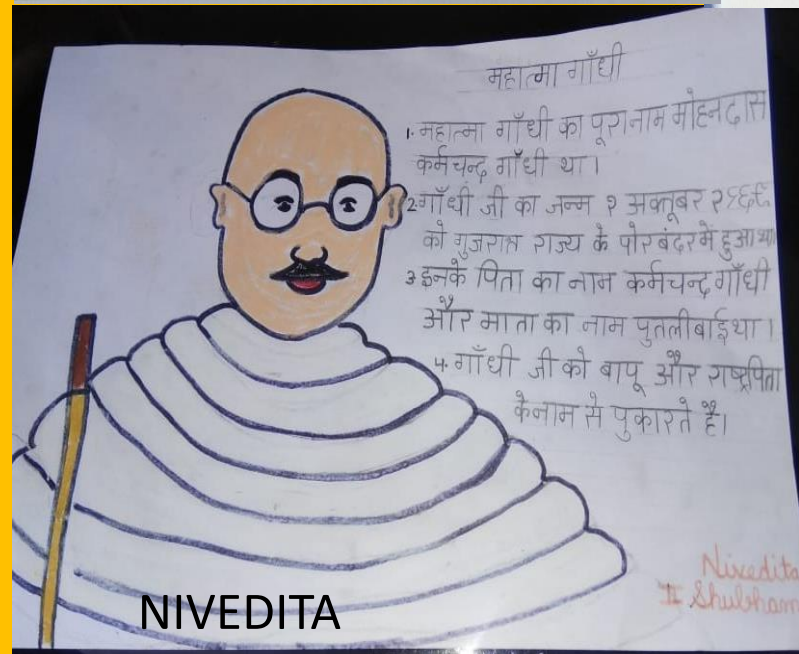 महात्मा गाँधी
1. महात्मा गाँधी का पूरा नाम मोहनदास
कर्मचन्द गाँधी था।
2 गाँधी जी का जन्म २ अक्तूबर १८६९
को गुजरात राज्य के पोरबंदर में हुआ था
3 इनके पिता का नाम कर्मचन्द गाँधी
और माता का नाम पुतलीबाई था।
४. गाँधी जी को बापू और राष्ट्रपिता
के नाम से पुकारते है।
Nivedita
II Shubham
NIVEDITA